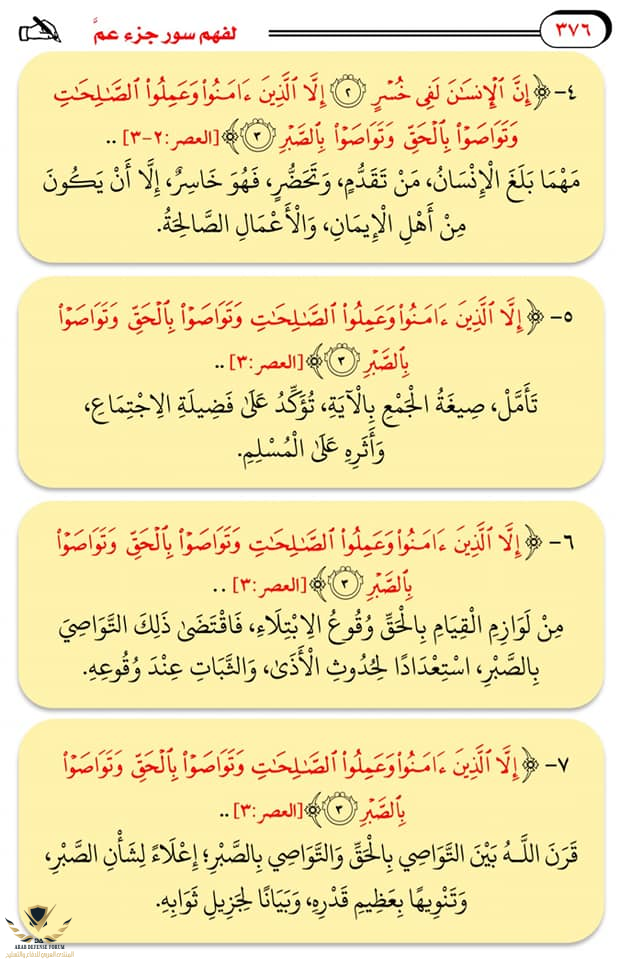 ٣٧٦
لفهم سور جزء عمَّ
٤- ﴿إِنَّ ٱلْإِنسَٰنَ لَفِى خُسْرٍ ٢ إِلَّا ٱلَّذِينَ ءَامَنُوا۟ وَعَمِلُوا۟ ٱلصَّٰلِحَٰتِ
وَتَوَاصَوْا۟ بِٱلْحَقِّ وَتَوَاصَوْا۟ بِٱلصَّبْرِ ٣﴾ [العصر:٢-٣] ..
مَهْمَا بَلَغَ الْإِنْسَانُ، مَنْ تَقَدُّمٍ، وَتَحَضُّرٍ، فَهُوَ خَاسِرٌ، إِلَّا أَنْ يَكُونَ
مِنْ أَهْلِ الْإِيمَانِ، وَالْأَعْمَالِ الصَّالِحَةُ.
٥- ﴿إِلَّا ٱلَّذِينَ ءَامَنُوا۟ وَعَمِلُوا۟ ٱلصَّٰلِحَٰتِ وَتَوَاصَوْا۟ بِٱلْحَقِّ وَتَوَاصَوْا۟
بِٱلصَّبْرِ ٣﴾ [العصر:٣] ..
تَأَمَّلْ، صِيغَةُ الْجَمْعِ بِالْآيَةِ، تُؤَكِّدُ عَلَىٰ فَضِيلَةِ الِاجْتِمَاعِ،
وَأَثَرِهِ عَلَىٰ الْمُسْلِمِ.
٦- ﴿إِلَّا ٱلَّذِينَ ءَامَنُوا۟ وَعَمِلُوا۟ ٱلصَّٰلِحَٰتِ وَتَوَاصَوْا۟ بِٱلْحَقِّ وَتَوَاصَوْا۟
بِٱلصَّبْرِ ٣﴾ [العصر:٣] ..
مِنْ لَوَازِمِ الْقِيَامِ بِالْحَقِّ وُقُوعُ الِابْتِلَاءِ، فَاقْتَضَىٰ ذَلِكَ التَّوَاصِيَ
بِالصَّبْرِ، اسْتِعْدَادًا لِحُدُوثِ الْأَذَىٰ، وَالثَّبَاتِ عِنْدَ وُقُوعِهِ.
٧- ﴿إِلَّا ٱلَّذِينَ ءَامَنُوا۟ وَعَمِلُوا۟ ٱلصَّٰلِحَٰتِ وَتَوَاصَوْا۟ بِٱلْحَقِّ وَتَوَاصَوْا۟
بِٱلصَّبْرِ ٣﴾ [العصر:٣] ..
قَرَنَ اللَّـهُ بَيْنَ التَّوَاصِي بِالْحَقِّ وَالتَّوَاصِي بِالصَّبْرِ؛ إِعْلَاءً لِشَأْنِ الصَّبْرِ،
وَتَنْوِيهًا بِعَظِيمِ قَدْرِهِ، وَبَيَانًا لِجَزِيلِ ثَوَابِهِ.
ARAB DEFENSE FORUM
المنتدى العربي للدفاع والتسليح